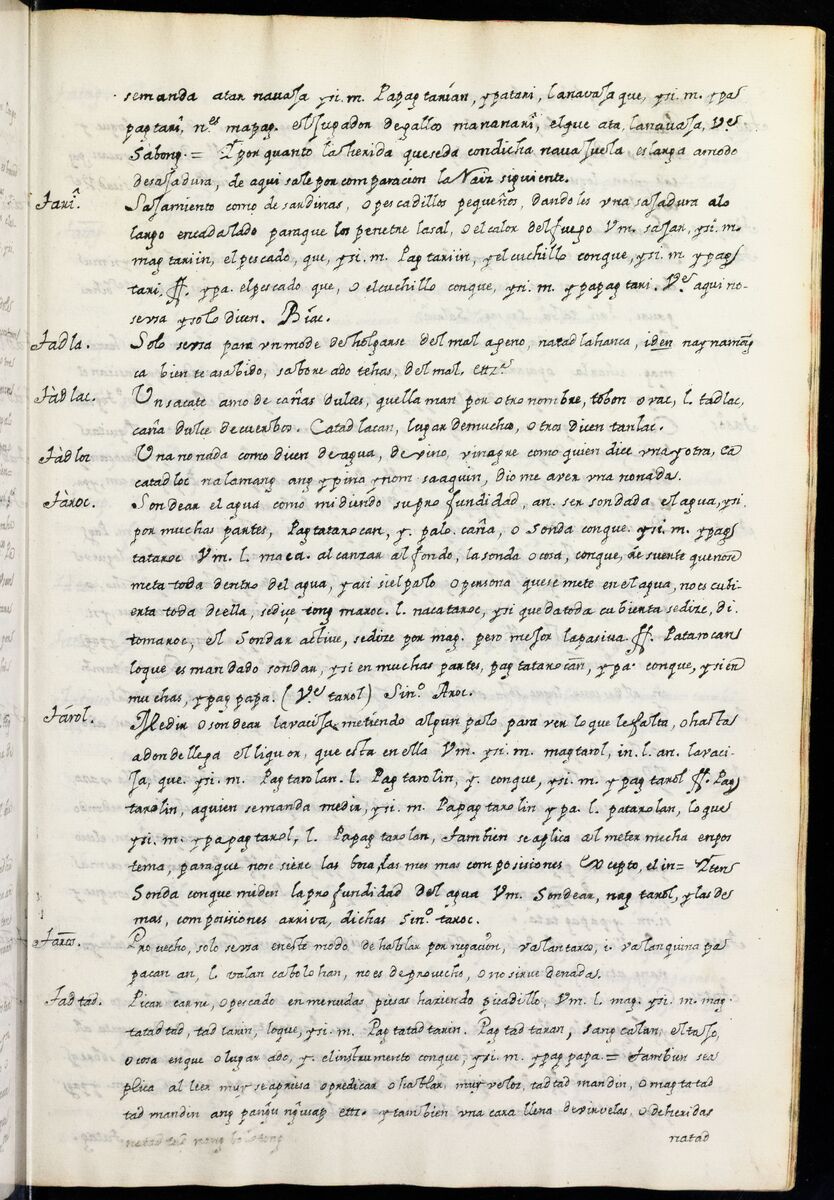 semanda atar navaja ysi.m. Papagtarian, ypatari, lanavaja que, ysi.m. ypag
pagtari, n.es mapag. eljugador degallos mananari, elque ata, lanavaja, V.e
Sabong. = Y por quanto laherida queseda condicha navajuela eslarga amodo
desajadura, de aqui sale por comparacion la Raiz siguiente.
Tari.
Sajamiento como de sardinas, o pescadillos pequeños, dandoles vna sajadura alo
largo encadalado paraque los penetre lasal, o elcalor delfuego Vm. sajar, ysi.m.
magtariin, el pescado, que, ysi.m. Pagtariin, y elcuchillo conque, ysi.m. ypag
tari. ff. ypa. elpescado que, o elcuchillo conque, ysi.m. ypapagtari. V.e aqui no
sevsa ysolo dicen. Biac.
Tadla.
Solo sevsa para vn mode deholgarse del mal ageno, natadlahanca, iden
ca bien te asabido, saboreado tehas, del mal, ettz.a
Tàdlac.
Un sacate amo de cañas dulces, quella man por otro nombre, tobon ovac, l. tadlac,
caña dulce decuerbos. Catadlacan, lugar demuchos, otros dicen tanlac.
Tàdloc
Una no nada como dicen deagua, de vino, vinagre como quien dice vna gota, Ca
catadloc nalamang ang ypinaynom saaquin, diome aver vna nonada.
Tàroc.
Sondear el agua como midiendo su profundidad, an. ser sondada el agua, ysi
por muchas partes, Pagtatarocan, y. palo. caña, o sonda conque. ysi.m. ypag
tataroc Vm. l. maca. alcanzar al fondo, la sonda o cosa, conque, de suerte quenose
meta toda dentro del agua, yasi sielpalo opersona quese mete en elagua, noes cubi-
erta toda deella, sedice tong maroc. l. nacataroc, ysi quedatoda cubierta sedize, di
tomaroc, el Sondar active, sedize por mag. pero mejor lapasiva. ff. Patarocan
loque es mandado sondar, ysi en muchas partes, pagtatarocan, y ypa. conque, ysi en
muchas, ypagpapa. (V.e tarol) Sin.o Aroc.
Tárol.
Medir osondear lavacija, metiendo algun palo para ver lo que lefalta, ohasta
adondellega el liquor, que esta en ella Vm. ysi.m. magtarol, in. l. an. lavaci-
ja, que. ysi.m. Pagtarolan. l. Pagtarolin, y. conque, ysi.m. ypagtarol ff. Pag
tarolin, aquien semanda medir, ysi.m. Papagtarolin ypa. l. patarolan, loque
ysi.m. ypapagtarol, l. Papagtarolan, tambien seaplica al meter mecha enpos
tema, paraque nose sierre las boca, las mesmas composisiones Excepto, el in = Yten
Sonda conque miden laprofundidad del agua Vm. Sondear, nag tarol, ylas de
mas, composisiones arriva, dichas Sin.o taroc.
Taros.
Provecho, solo sevsa eneste modo. de hablar por negacion, valantaros, i. valanquinapa
pacan an, l. valan cabolohan, noes deprovecho, onosirve denadas.
Tadtad.
Picar carne, opescado en menudas piesas haziendo picadillo, Vm. l. mag. ysi.m. mag.
tatadtad, tadtarin, loque, ysi.m. Pagtatadtarin. Pagtadtaran, sangcalan, eltajo,
ocosa enque olugar ado, y. elinstrumento conque, ysi.m. ypagpapa = tambien sea
plica al leer muy seapriesa opredicar ohablar, muy veloz, tadtad mandin, omagtatad
tad mandin ang ettz. ytambien vna cara llena deviruelas, odeheridas
natad